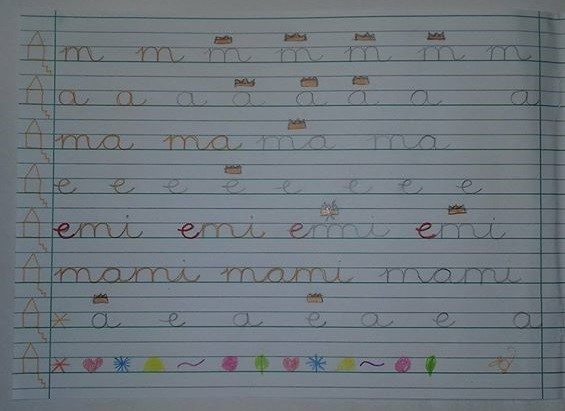 m m m m m m m
a a a a a a a a
ma ma ma ma
e e e e e e e e
emi emi emi emi
mami mami mami
a e a e a e a